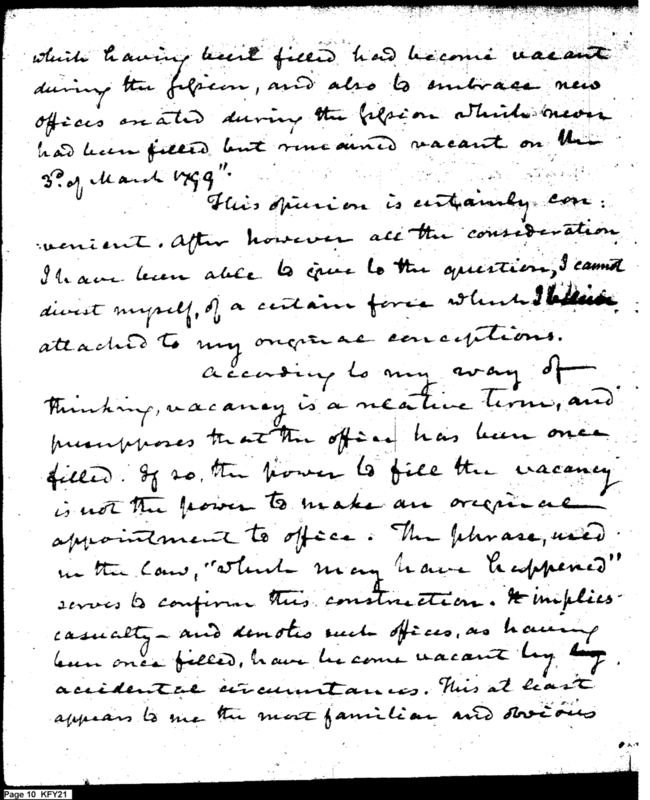 which having been filled had become vacant
during the session, and also to embrace new
offices created during the session which never
had been filled but remained vacant on the
3d. of March 1799".
This opinion is certainly con:
venient. After however all the consideration
I have been able to give to the question, I cannot
divest myself, of a certain force which I believe
attached to my original conceptions.
According to my way of
thinking, vacancy is a relative term, and
presupposes that the office has been once
filled. If so, the power to fill the vacancy
is not the power to make an original
appointment to office. The phrase, used
in the law, "which may have happened"
serves to confirm this construction. It implies
casualty - and denotes such offices, as having
been once filled, have become vacant by by
accidental circumstances. This at least
appears to me the most familiar and obvious
Page 10 KFY21